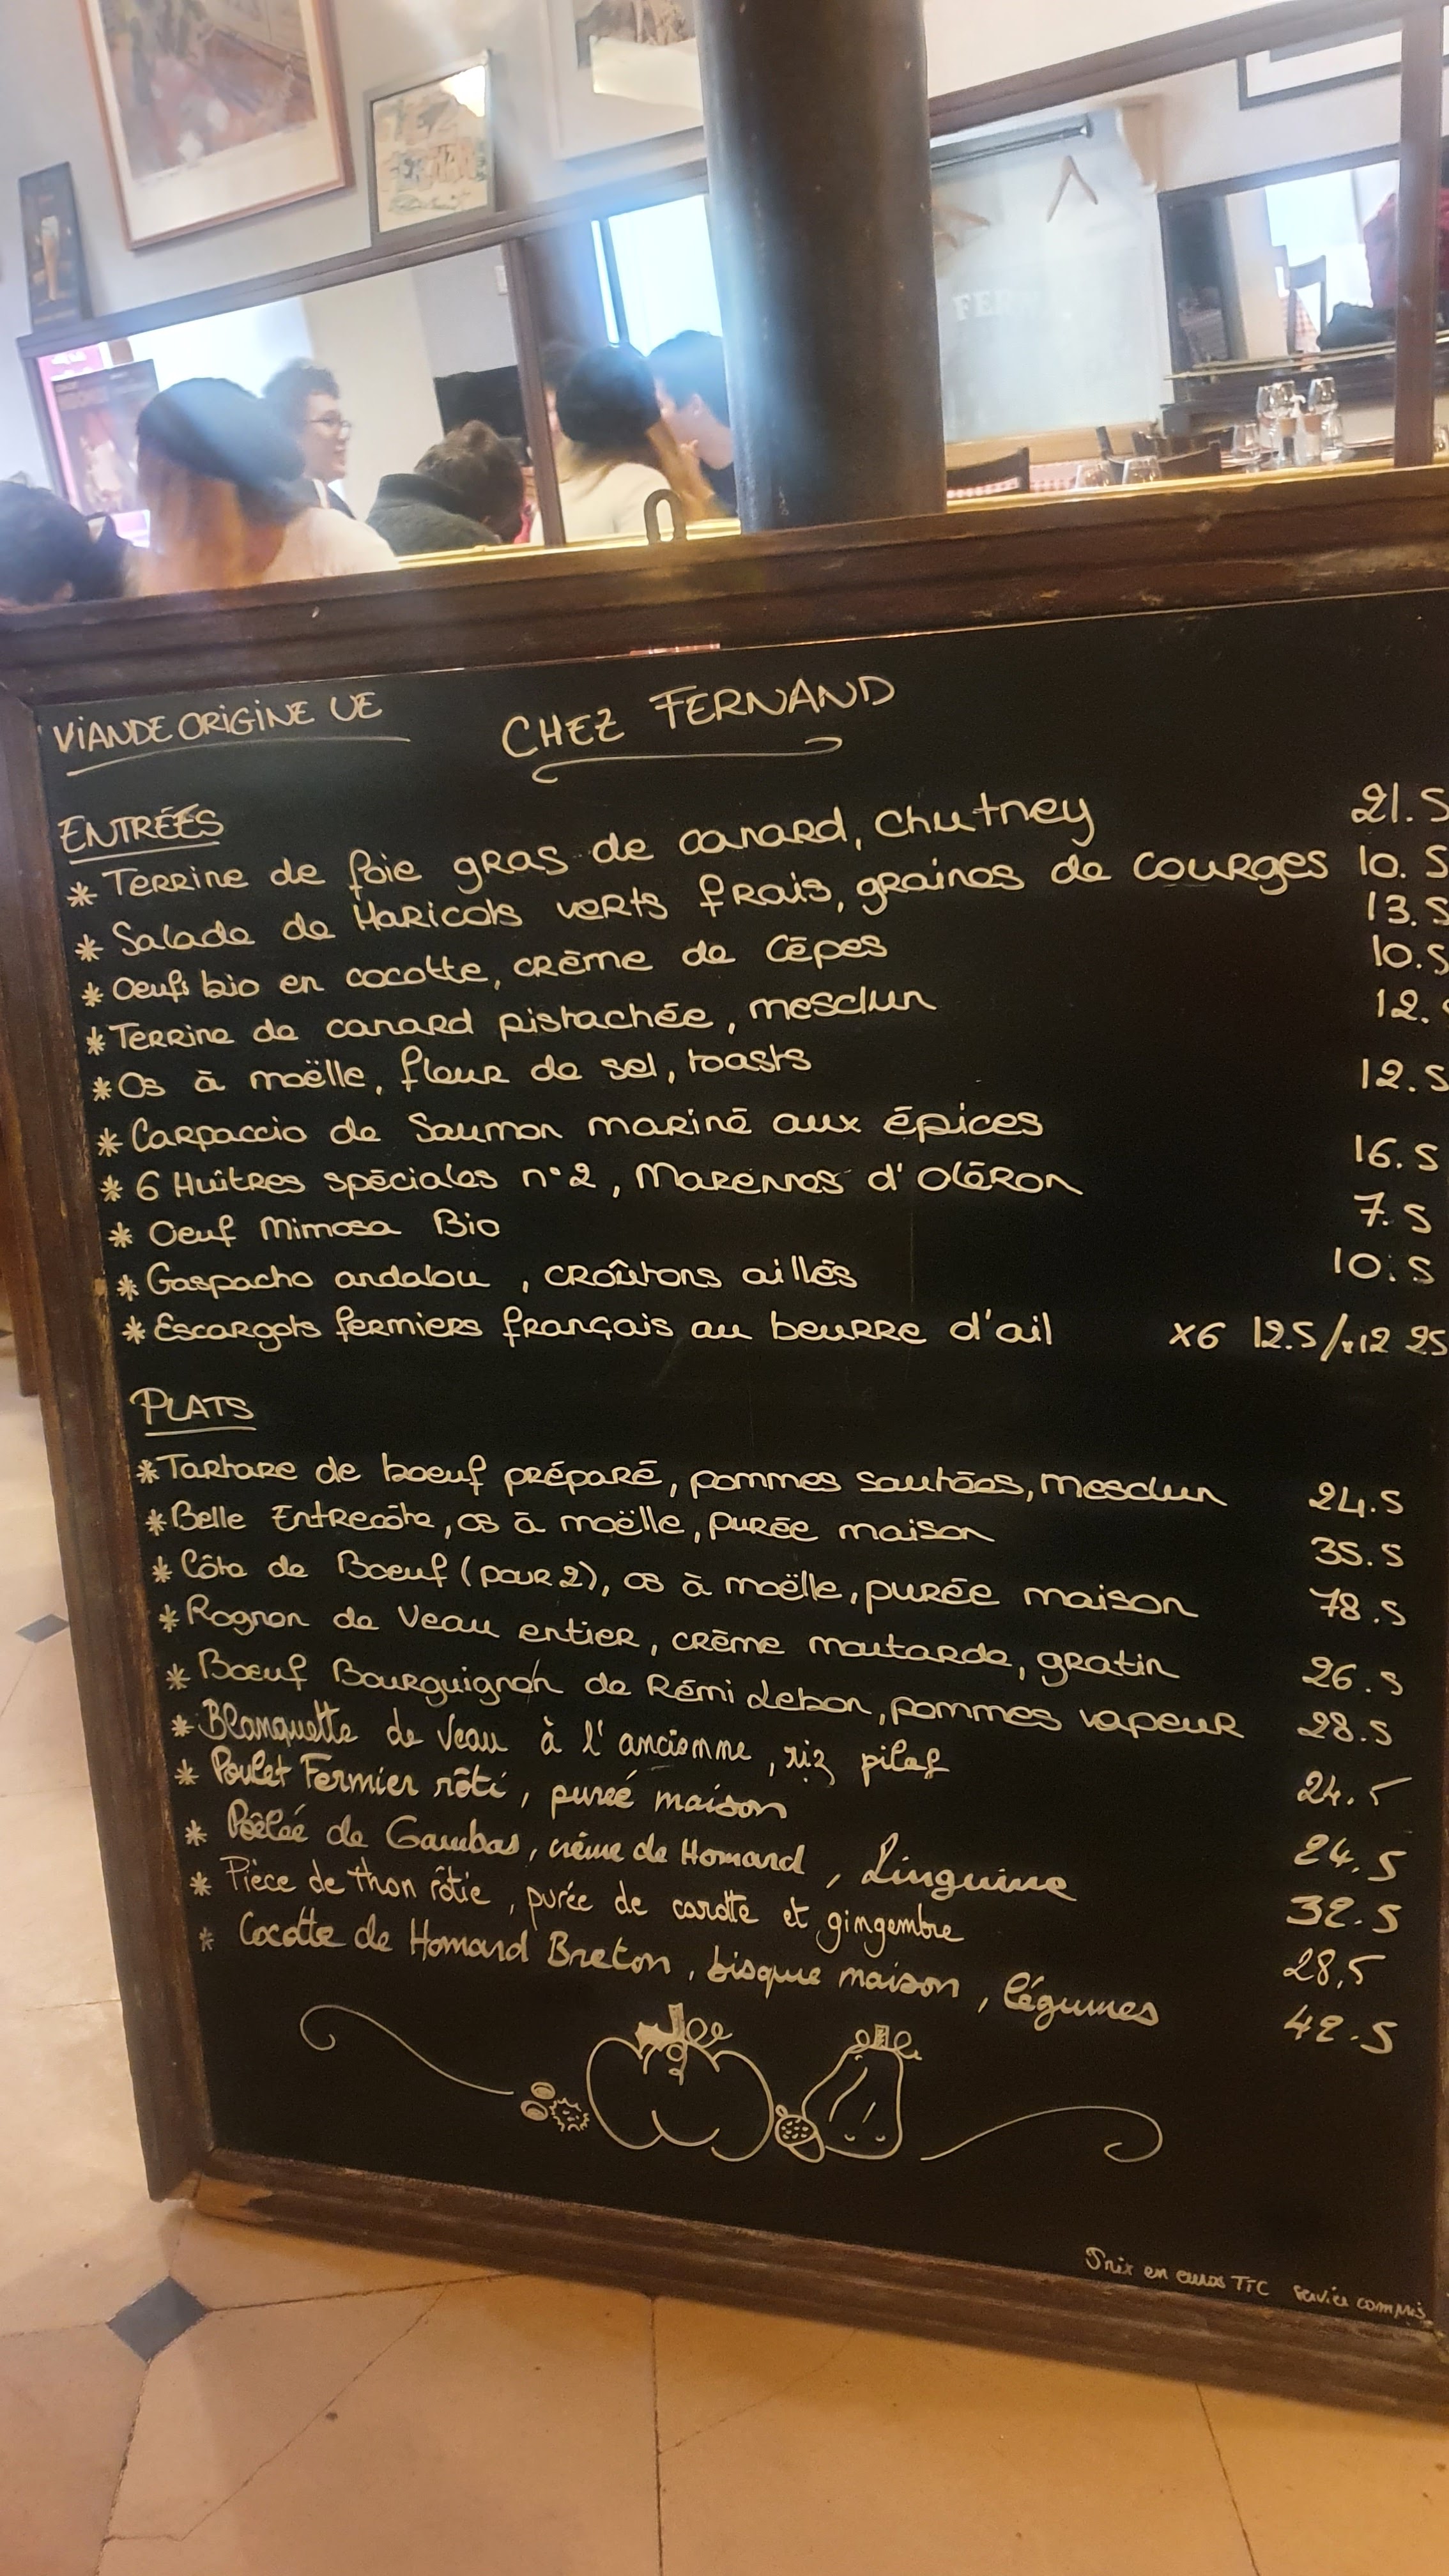 FER
VIANDE ORIGINE UE
CHEZ FERNAND
ENTRÉES
* Terrine de foie gras de canard, chutney 21.5
* Salade de Haricots verts frais, graines de courges 10.5
* Oeufs bio en cocotte, crème de Cèpes 13.5
* Terrine de canard pistachée, mesclun 10.5
* Os à moëlle, fleur de sel, toasts 12.
* Carpaccio de Saumon mariné aux épices 12.5
* 6 Huîtres spéciales n°2, Marennes d'Oléron 16.5
* Oeuf Mimosa Bio 7.5
* Gaspacho andalou, croûtons aillés 10.5
* Escargots fermiers français au beurre d'ail x6 12.5/x12 25
PLATS
* Tartare de boeuf préparé, pommes sautées, mesclun 24.5
* Belle Entrecôte, os à moëlle, purée maison 35.5
* Côte de Boeuf (pour 2), os à moëlle, purée maison 78.5
* Rognon de Veau entier, crème moutarde, gratin 26.5
* Boeuf Bourguignon de Rémi Lebon, pommes vapeur 28.5
* Blanquette de Veau à l'ancienne, riz pilaf 24.5
* Poulet Fermier rôti, pureé maison 24.5
* Pôêlée de Gambas, crème de Homard, Linguine 32.5
* Pièce de thon rôtie, purée de carotte et gingembre 28,5
* Cocotte de Homard Breton, bisque maison, légumes 42.5
Prix en euros TTC service compris